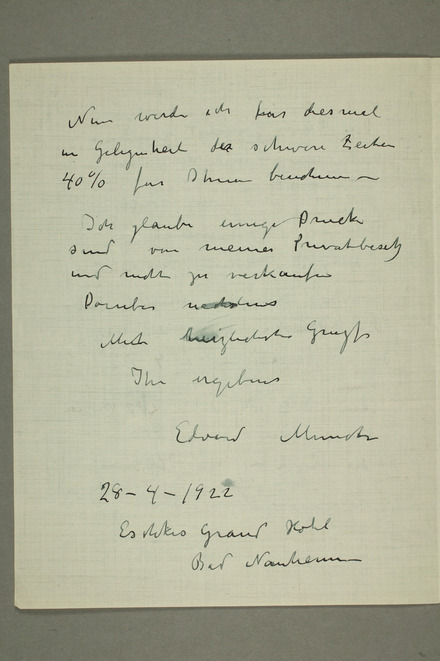 Nun werde ich fur diesmal
in Gelegenheit der schwere Zeiten
40% fur Ihnen
Ich glaube einige Drucke
sind von meines Privatbesitz
und nicht zu verkaufen
Daruber
Mit herzlichsten
Ihr ergebnes
Edvard Munch
28-4-1922
Grand Hotel
Bad Nauheim